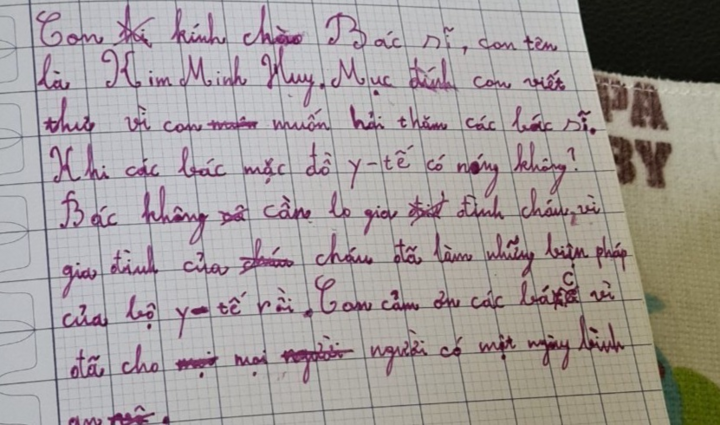 Con kính chào Bác sĩ, con tên
là Kim Minh Huy. Mục đính con viết
thư vì con muốn hỏi thăm các bác sĩ.
Khi các bác mặc đồ y-tế có nóng không?
Bác không cần lo gia đình cháu, vì
gia đình của cháu đã làm những biện pháp
của bộ y-tế rồi. Con cảm ơn các bác vì
đã cho mọi người có một ngày bình
an.
PA
BY